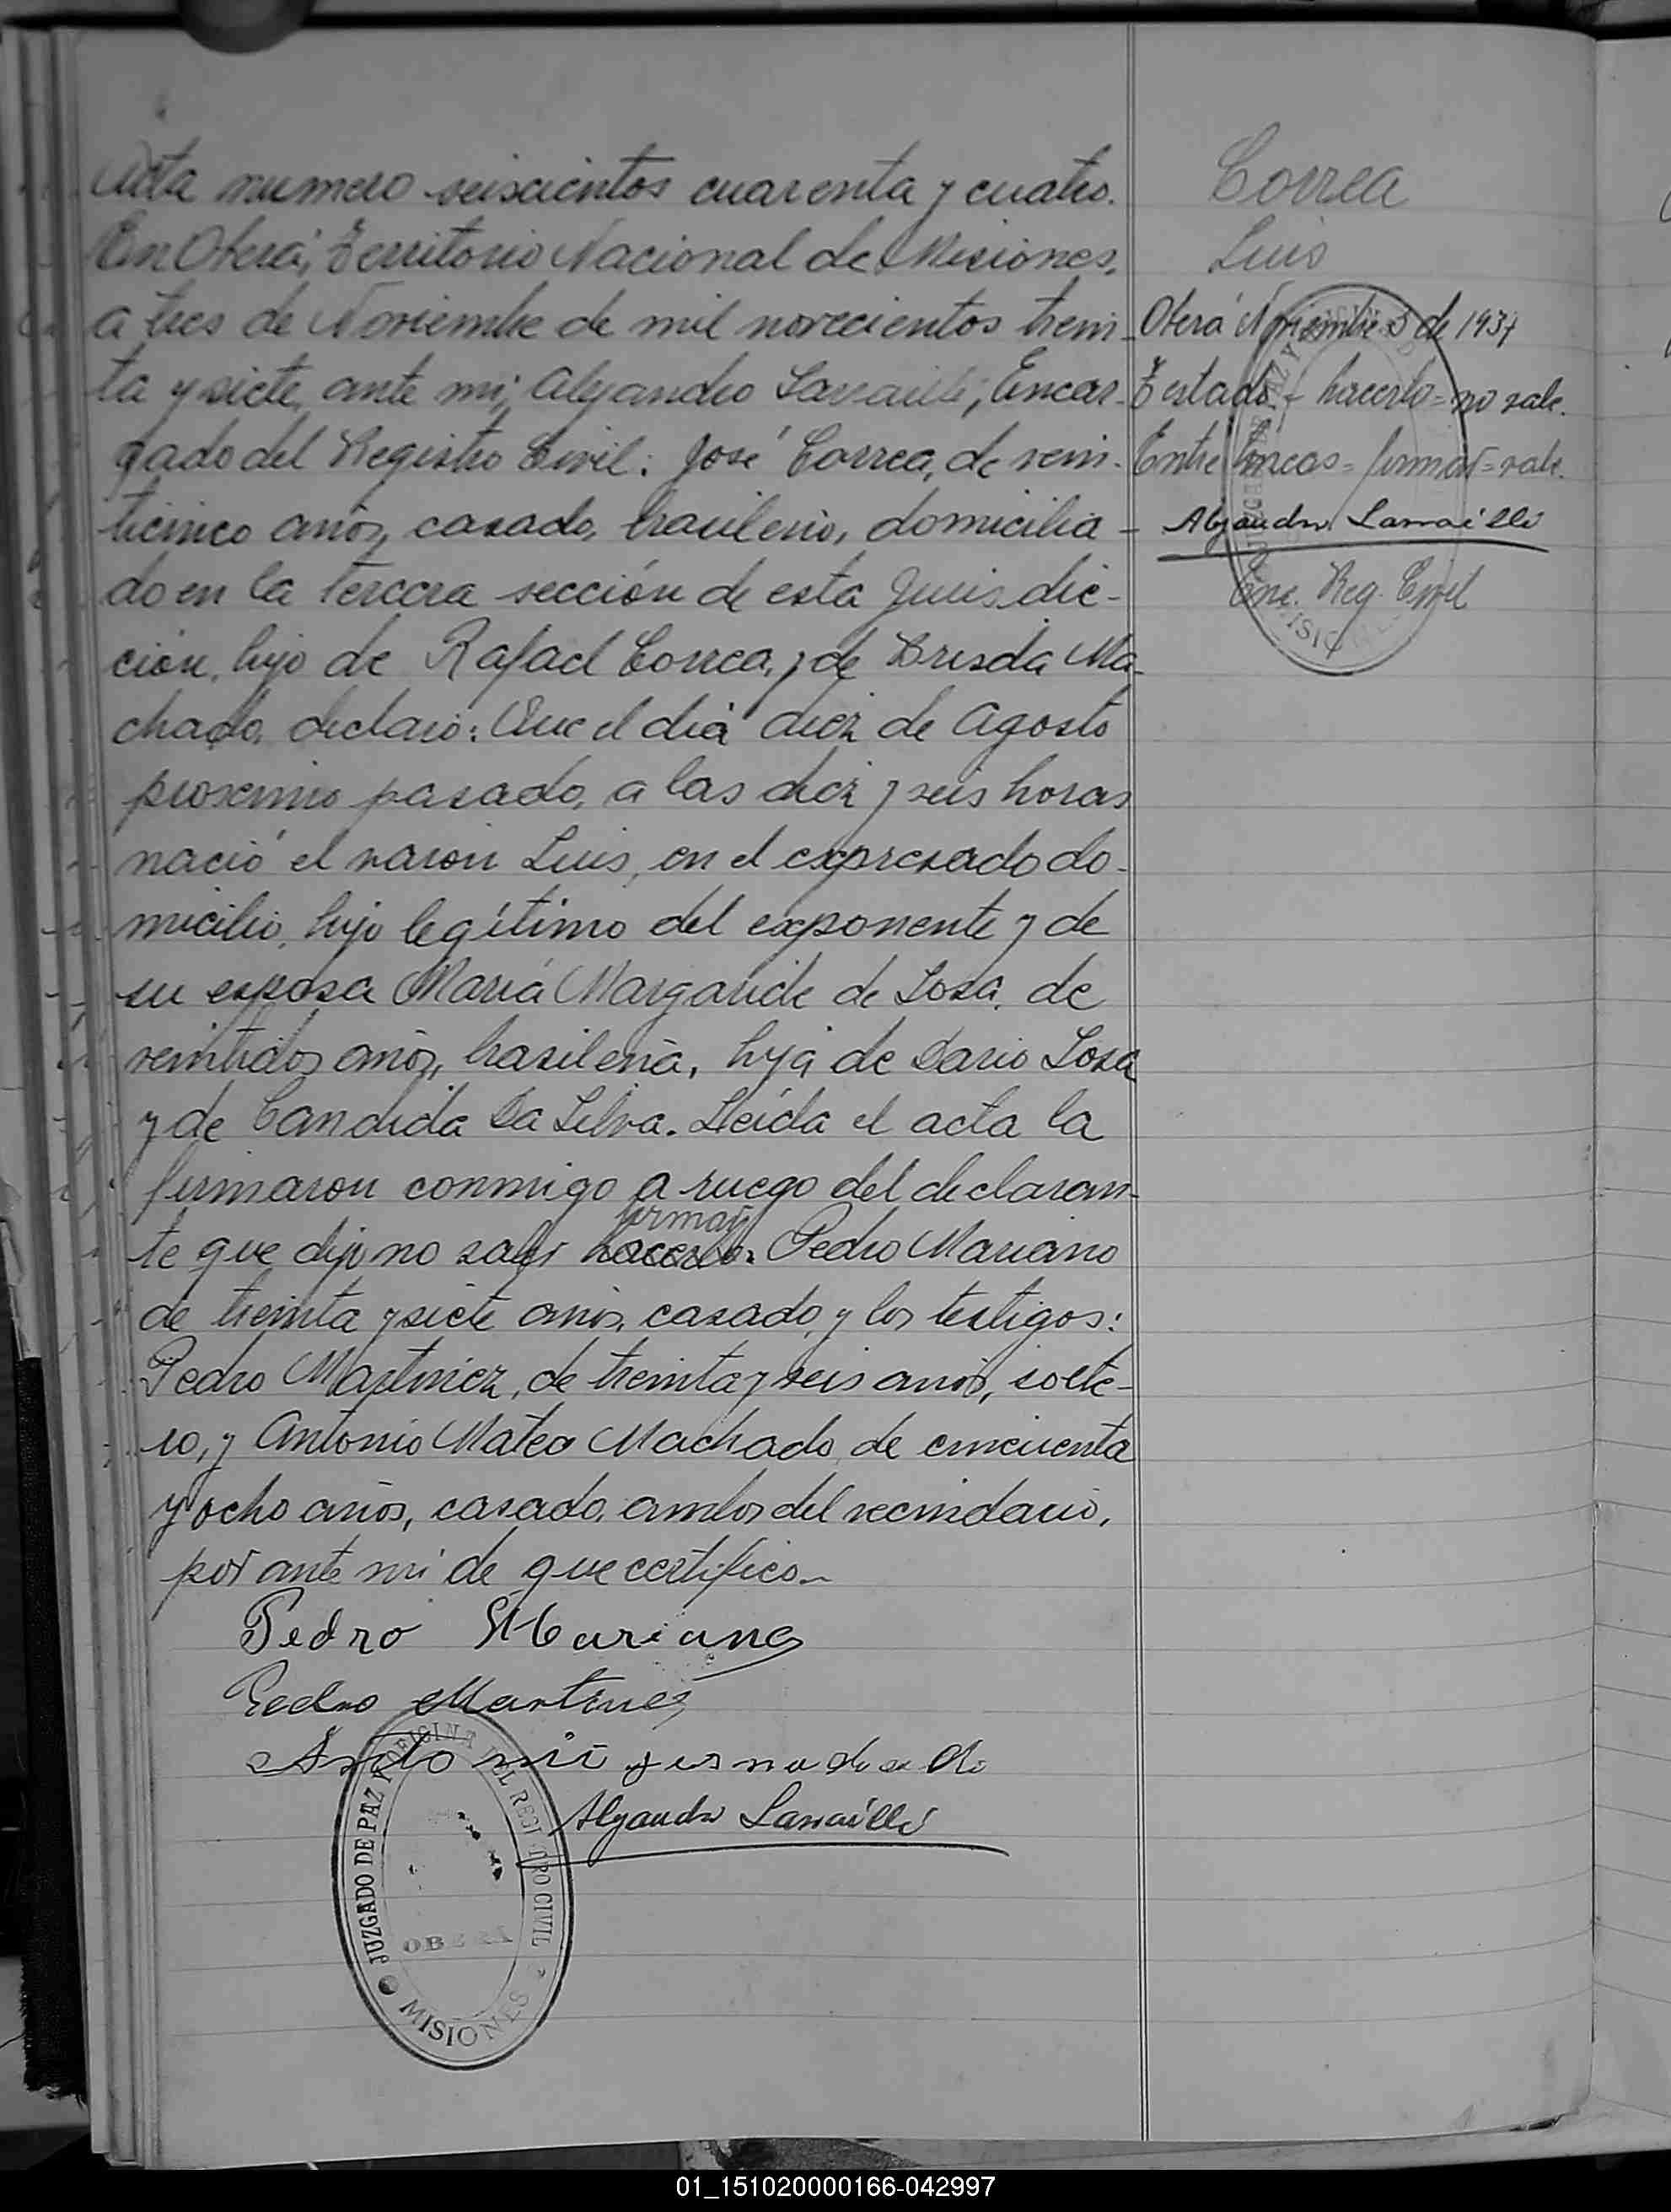 Acta numero seiscientos cuarenta y cuatro.
En Oberá, Territorio Nacional de Misiones,
a tres de Noviembre de mil novecientos trein-
ta y siete, ante mi, Alejandro Larraillé, Encar-
gado del Registro Civil: José Correa, de vein-
ticinco años, casado, brasileño, domicilia-
do en la tercera sección de esta Jurisdic-
ción, hijo de Rafael Correa, y de Brisda Ma-
chado, declaró: Que el día diez de Agosto
proximo pasado, a las diez y seis horas
nació el varon Luis, en el expresado do-
micilio, hijo legítimo del exponente y de
su esposa María Margaride de Sosa, de
veintidos años, brasileña, hija de Dario Sosa
y de Candida Da Silva. Leída el acta la
firmaron conmigo a ruego del declaran-
firmar
te que dijo no saber hacerlo. Pedro Mariano
de treinta y siete años, casado, y los testigos:
Pedro Martinez, de treinta y seis años, solte-
ro, y Antonio Mateo Machado, de cincuenta
y ocho años, casado, ambos del vecindario,
por ante mi de que certifico.-
Pedro Mariano
Pedro Martines
Alejandro Larraillé
JUZGADO DE PAZ Y OFICINA DEL REGISTRO CIVIL
OBERA
MISIONES
Correa
Luis
Oberá Noviembre 3 de 1937
Testado - hacerlo = no vale.
Entre lineas = firmar = vale.
Alejandro Larraillé
Enc. Reg. Civil
01_151020000166-042997